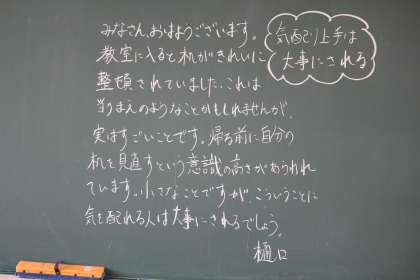 みなさん、おはようございます。
教室に入ると机がきれいに
整頓されていました。これは
当りまえのようなことかもしれませんが、
実はすごいことです。帰る前に自分の
机を見直すという意識の高さがあらわれ
ています。小さなことですが、こういうことに
気を配れる人は大事にされるでしょう。
樋口
気配り上手は
大事にされる